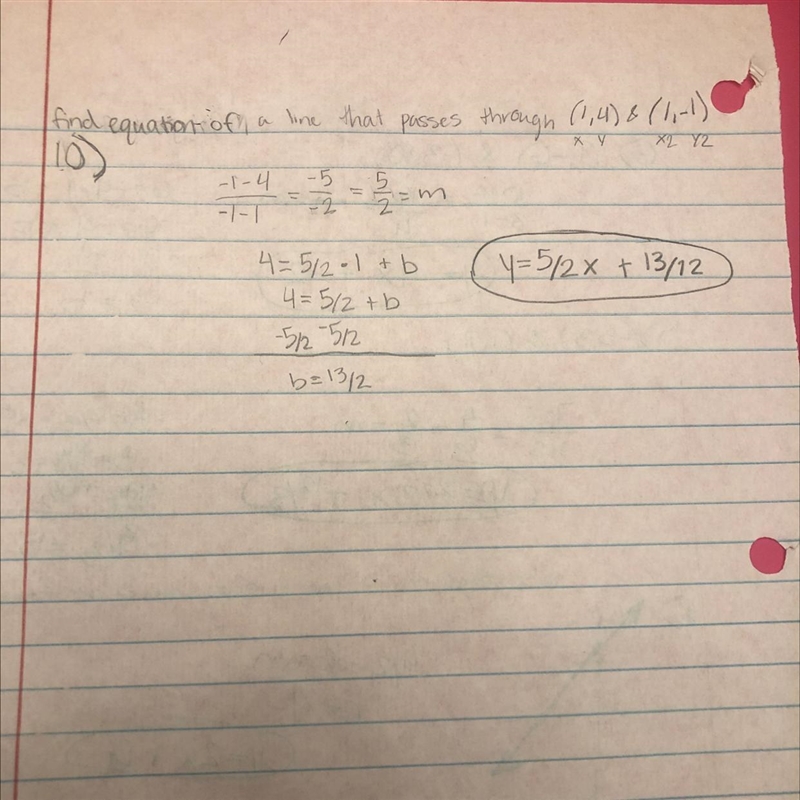 find equation of a line that passes through (1,4) & (1,-1)
x y x2 y2
10)
-1-4/-1-1 = -5/-2 = 5/2 = m
4 = 5/2 • 1 + b
y = 5/2 x + 13/12
4 = 5/2 + b
-5/2 -5/2
b = 13/2